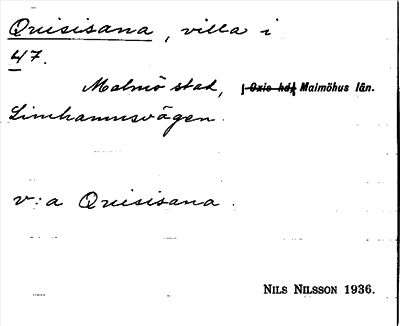 Quisisana, villa i
47.
Malmö stad, Oxie hd Malmöhus län.
Limhamnsvägen.
v:a Quisisana.
NILS NILSSON 1936.